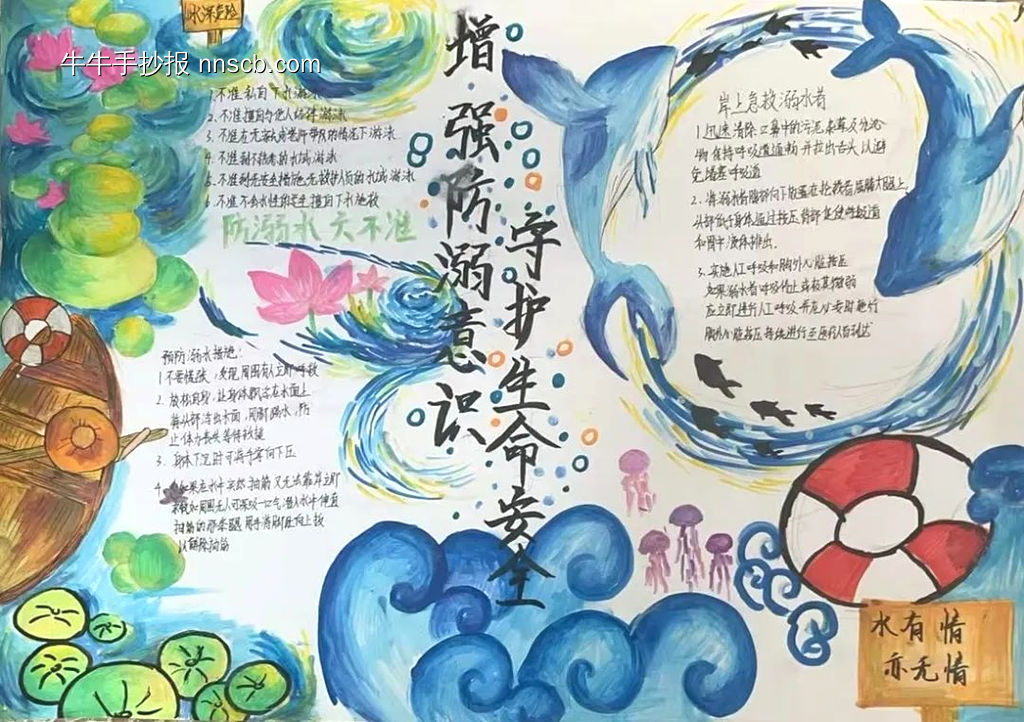 水深危险
牛牛手抄报 nnscb.com
1.不准私自下水游泳
2.不准擅自与他人结伴游泳
3.不准在无家长或老师带领的情况下游泳
4.不准到不熟悉的水域游泳
5.不准到无安全措施、无救护人员的水域游泳
6.不准不会水性的学生擅自下水施救
防溺水六不准
增强防溺意识
守护生命安全
岸上急救溺水者
1.迅速清除口鼻中的污泥杂草及分泌
物保持呼吸道通畅并拉出舌头以避
免堵塞呼吸道
2.将溺水者
头部
和胃中液体排出.
3.实施人工呼吸和胸外心脏按压
如果溺水者呼吸停止或极其微弱
应立即进行人工呼吸
预防溺水措施:
1不要慌张,发现周围有人立即呼救
2.放松自身,让身体飘浮在水面上
将头部浮出水面,用脚踢水,防
止体力丧失等待救援
3.身体下沉时可将手掌向下压
4.如果在水中突然抽筋又无法靠岸立即
求救如周围无人可深吸一口气潜入水中伸直
抽筋的那条腿用手将脚趾向上扳
以解除抽筋
水有情
亦无情